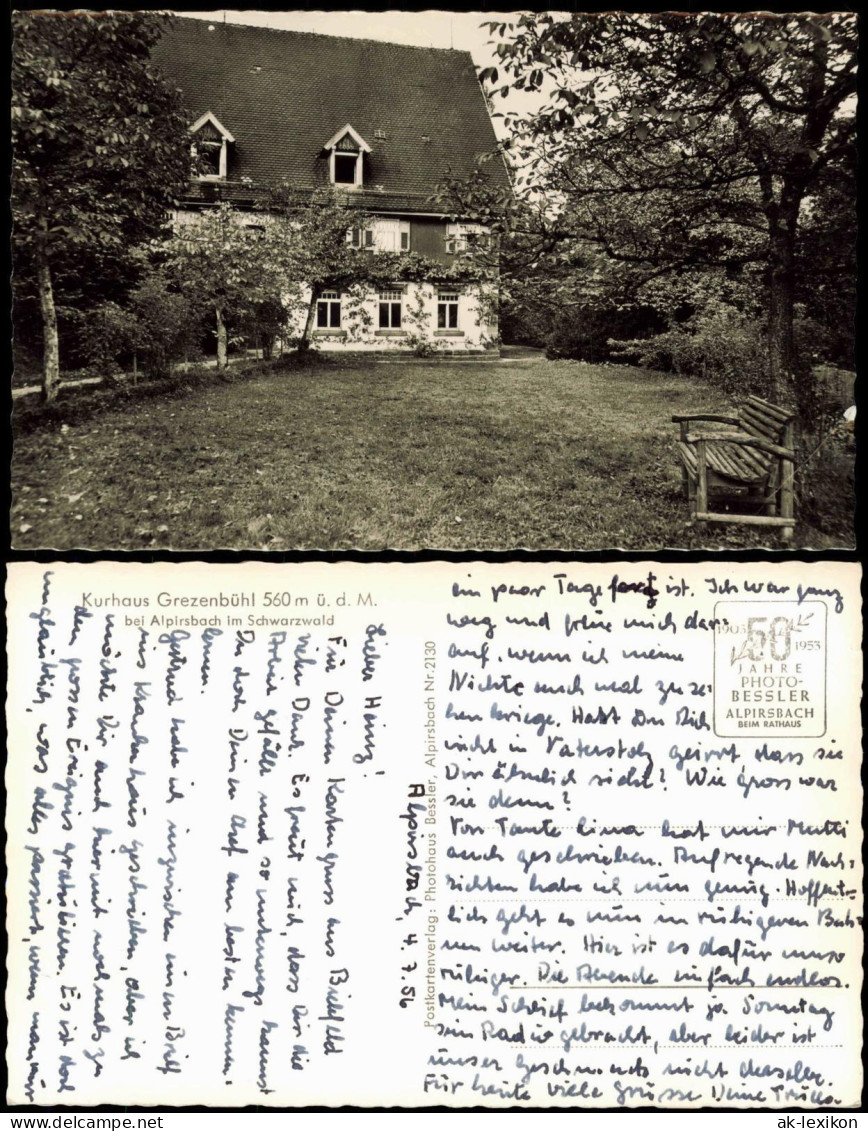 Kurhaus Grezenbühl 560 m ü. d. M.
bei Alpirsbach im Schwarzwald
Postkartenverlag: Photohaus Bessler, Alpirsbach Nr. 2130
1903 50 1953
JAHRE
PHOTO-
BESSLER
ALPIRSBACH
BEIM RATHAUS
Alpirsbach, 4.7.56
Lieber Heinz!
Für Deinen Kartengruss aus Bielefeld
vielen Dank. Es freut mich, dass Dir die
Arbeit gefällt und so unterwegs kannst
Du doch Deinen Chef am besten kennen-
lernen.
Gertrud habe ich inzwischen einen Brief
ins Krankenhaus geschrieben, aber ich
möchte Dir auch hiermit nochmals zu
dem grossen Ereignis gratulieren. Es ist doch
unglaublich, was alles passiert, wenn man nur
ein paar Tage fort ist. Ich war ganz
weg und freue mich dar-
auf, wenn ich meine
Nichte auch mal zu se-
hen kriege. Hast Du Dich
nicht in Vaterstolz geirrt, dass sie
Dir ähnlich sieht? Wie gross war
sie denn?
Von Tante Lina hat mir Mutti
auch geschrieben. Aufregende Nach-
richten habe ich nun genug. Hoffent-
lich geht es nun in ruhigeren Bah-
nen weiter. Hier ist es dafür umso
ruhiger. Die Abende einfach endlos.
Mein Chef bekommt ja Sonntag
sein Radio gebracht, aber leider ist
unser Geschmack nicht derselbe.
Für heute viele Grüsse Deine
www.ansichtskarten-lexikon.de
ak-lexikon